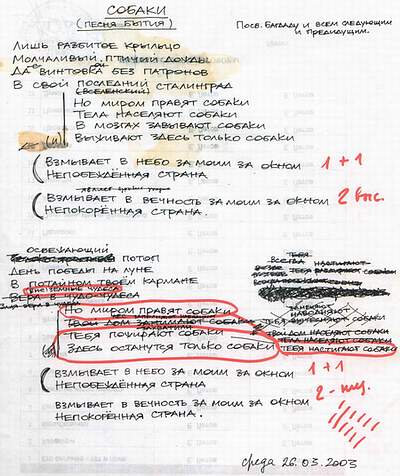 СОБАКИ
(ПЕСНЯ БЫТИЯ)
Посв. Багдаду и всем следующим
и предидущим.
ЛИШЬ РАЗБИТОЕ КРЫЛЬЦО
МОЛЧАЛИВЫЙ ПТИЧИЙ ДОЖДЬ
ДА ВИНТОВКА БЕЗ ПАТРОНОВ
В СВОЙ ПОСЛЕДНИЙ СТАЛИНГРАД
(ВСЕЛЕНСКИЙ)
НО МИРОМ ПРАВЯТ СОБАКИ
ТЕЛА НАСЕЛЯЮТ СОБАКИ
В МОЗГАХ ЗАВЫВАЮТ СОБАКИ
ВЫЖИВАЮТ ЗДЕСЬ ТОЛЬКО СОБАКИ
ВЗМЫВАЕТ В НЕБО ЗА МОИМ ЗА ОКНОМ
НЕПОБЕЖДЁННАЯ СТРАНА
1 + 1
ВЗМЫВАЕТ В ВЕЧНОСТЬ ЗА МОИМ ЗА ОКНОМ
НЕПОКОРЁННАЯ СТРАНА.
2
ОСВЕЖАЮЩИЙ
ПОТОП
ДЕНЬ ПОБЕДЫ НА ЛУНЕ
В ПОТАЙНОМ ТВОЁМ КАРМАНЕ
ВНЕЗЕМНЫЕ ЧУДЕСА
ВЕРА В ЧУДО-ЧУДЕСА
НО МИРОМ ПРАВЯТ СОБАКИ
ТВОЙ ДОМ ЗАНИМАЮТ СОБАКИ
ТЕБЯ ПОЖИРАЮТ СОБАКИ
ЗДЕСЬ ОСТАНУТСЯ ТОЛЬКО СОБАКИ
НАВОДНЯЮТ
ТВОЙ ДОМ НАСЕЛЯЮТ СОБАКИ
ТЕЛА НАСЕЛЯЮТ СОБАКИ
ТЕБЯ НАСТИГАЮТ СОБАКИ
ВЗМЫВАЕТ В НЕБО ЗА МОИМ ЗА ОКНОМ
НЕПОБЕЖДЁННАЯ СТРАНА
1 + 1
ВЗМЫВАЕТ В ВЕЧНОСТЬ ЗА МОИМ ЗА ОКНОМ
НЕПОКОРЁННАЯ СТРАНА.
2
среда 26.03.2003